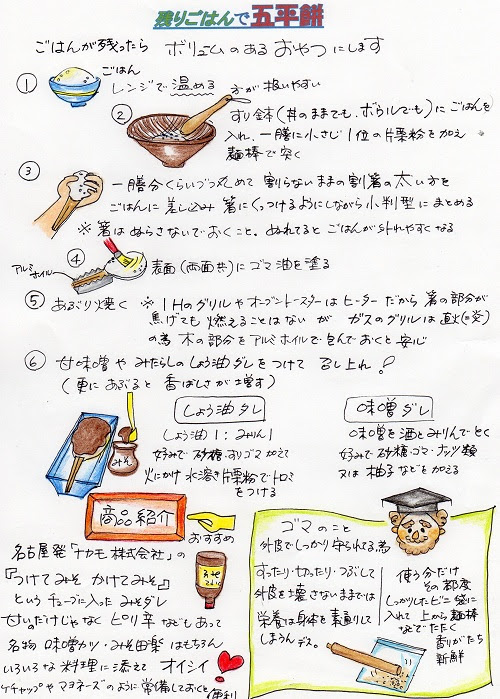 残りごはんで五平餅
ごはんが残ったら ボリュームのあるおやつにします
① ごはん
レンジで温める 方が扱いやすい
② すり鉢(丼のままでも、ボウルでも)にごはんを
入れ、一膳に小さじ1位の片栗粉を加え
麺棒で突く
③ 一膳分くらいづつ丸めて 割らないままの割箸の太い方を
ごはんに差し込み 箸にくっつけるようにしながら小判型にまとめる
※箸はぬらさないでおくこと。ぬれてると ごはんが外れやすくなる
アルミホイル
④ 表面(両面共)にゴマ油を塗る
⑤ あぶり焼く ※IHのグリルやオーブントースターはヒーターだから 箸の部分が
焦げても燃えることはないが ガスのグリルは直火(=炎)
の為 木の部分をアルミホイルで包んでおくと安心
⑥ 甘味噌やみたらしのしょう油ダレをつけて 召し上れ!
(更にあぶると 香ばしさが増す)
みそ
しょう油タレ
しょう油1:みりん1
好みで砂糖・すりゴマ加えて
火にかけ 水溶き片栗粉でトロミ
をつける
味噌ダレ
味噌を酒とみりんでとく
好みで砂糖・ゴマ・ナッツ類
又は 柚子などを加える
商品紹介
おすすめ
名古屋発「ナカモ株式会社」の
『つけてみそ かけてみそ』
というチューブに入ったみそダレ
甘いのだけじゃなく ピリ辛などもあって
名物 味噌カツ・みそ田楽はもちろん
いろいろな料理に添えて オイシイ
ケチャップやマヨネーズのように常備しておくと便利
ゴマのこと
外皮でしっかり守られてる為
すったり・切ったり・つぶして
外皮を壊さないままでは
栄養は身体を素通りして
しまうんデス。
使う分だけ
その都度
しっかりしたビニ袋に
入れて 上から麺棒
などでたたく
香りがたち
新鮮